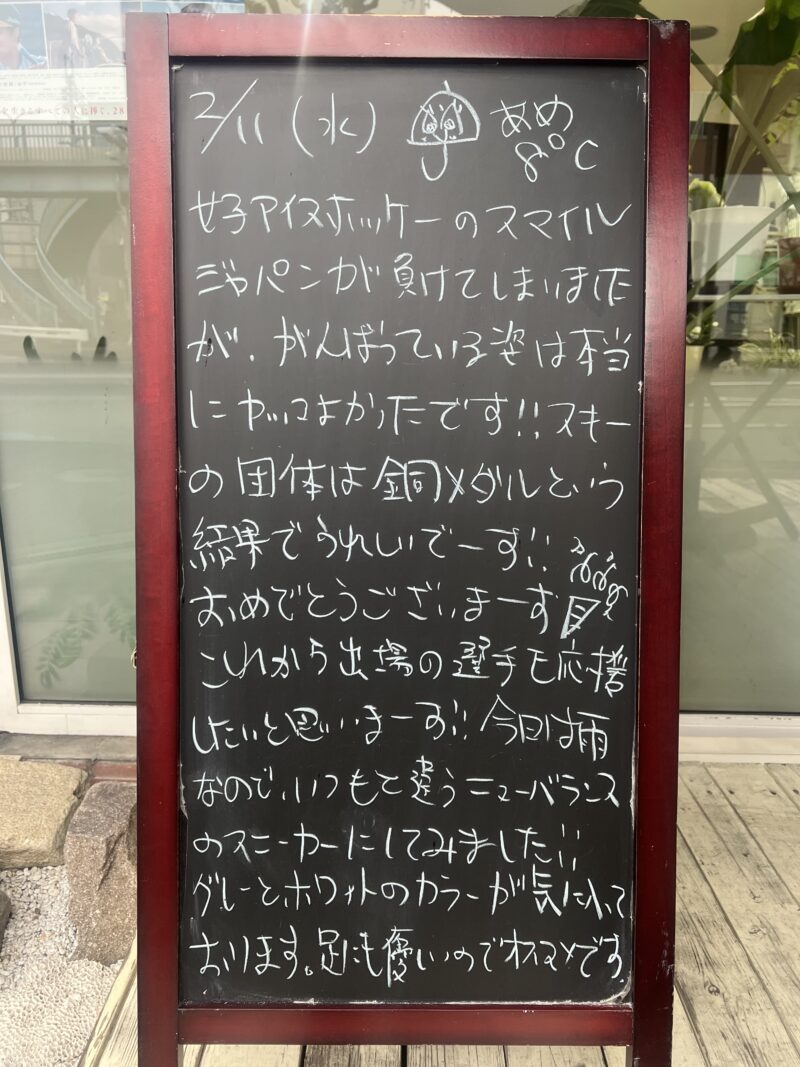 を生きるすべての人に捧ぐ、28
2/11(水) あめ
8°C
女子アイスホッケーのスマイル
ジャパンが負けてしまいました
が、がんばっている姿は本当
にカッコよかったです!!スキー
の団体は銅メダルという
結果でうれしいでーす!!
おめでとうございまーす
これから出場の選手も応援
したいと思いまーす!!今日は雨
なので、いつもと違うニューバランス
のスニーカーにしてみました!!
グレーとホワイトのカラーが気に入って
おります。足にも優しいのでオススメです